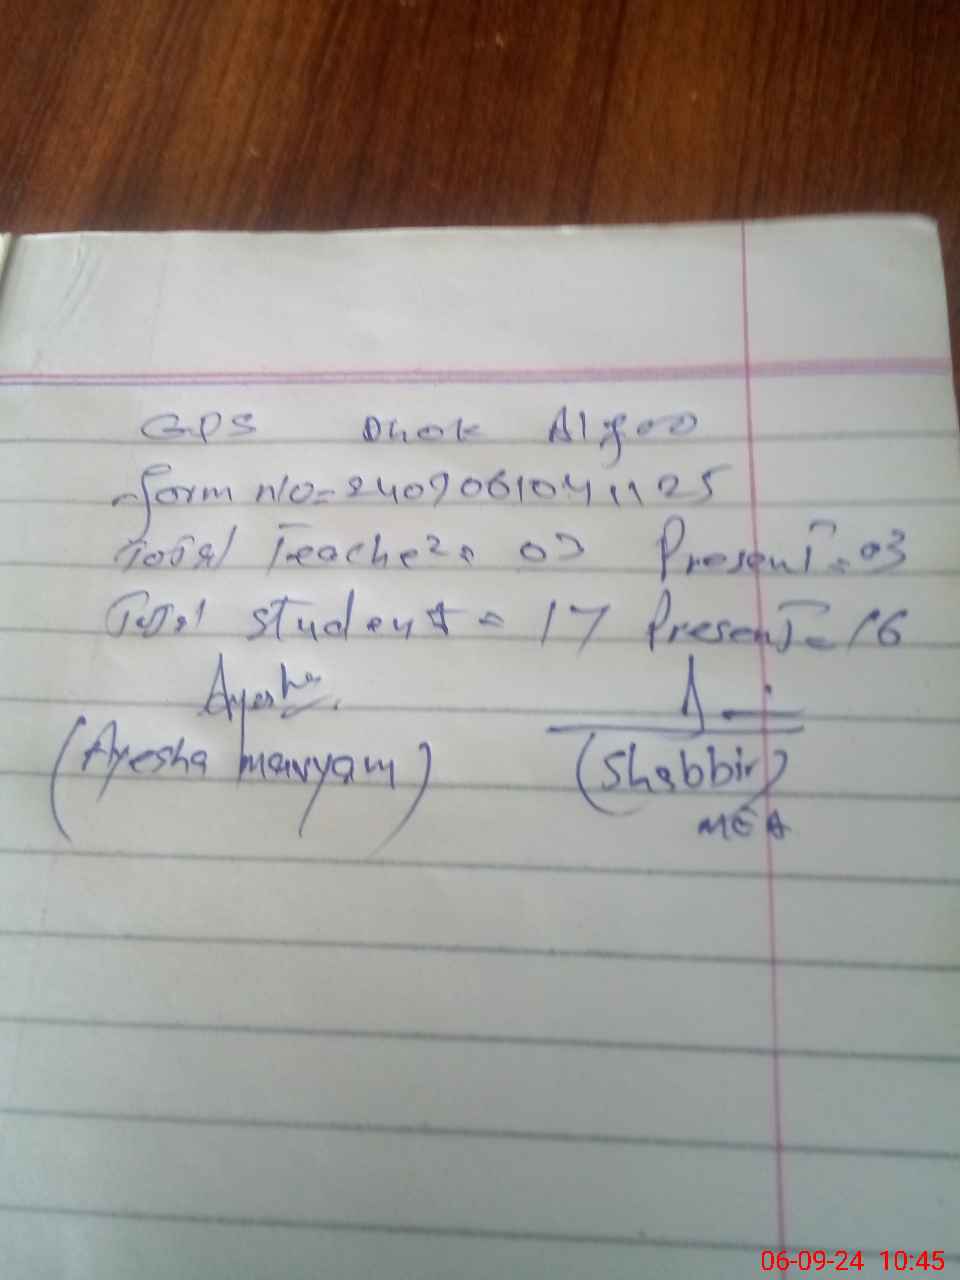 GPS Dhok
Form No = 2409061041125
Total Teacher = 03 Present = 03
Total student = 17 Present = 16
Ayesha
(Ayesha maryam) (Shabbir)
MEA
06-09-24 10:45